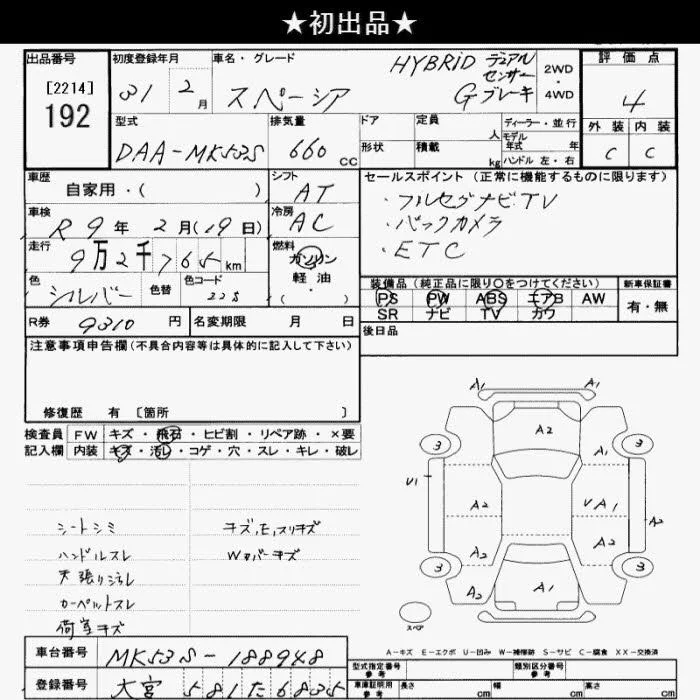 ★初出品★
出品番号
[2214]
192
初度登録年月
31 2月
車名・グレード
スペーシア
HYBRID デュアル
センサー
G ブレーキ
2WD
・
4WD
評価点
4
外装 内装
C C
型式
DAA-MK53S
排気量
660 CC
ドア
形状
定員 人
積載 kg
ディーラー・並行
モデル
年式 年
ハンドル 左・右
車歴
自家用・( )
シフト
AT
車検
R9年2月(19日)
冷房
AC
走行
9万2千765km
燃料
ガソリン
軽油
・( )
色
シルバー
色替
色コード
22S
R券 9310円
名変期限 月 日
セールスポイント(正常に機能するものに限ります)
・フルセグナビTV
・バックカメラ
・ETC
装備品(純正品に限り○をつけてください)
PS PW ABS エアB AW
SR ナビ TV カワ
新車保証書
有・無
後日品
注意事項申告欄(不具合内容等は具体的に記入して下さい)
修復歴 有 〔箇所 〕
検査員
記入欄
FW キズ・飛石・ヒビ割・リペア跡・×要
内装 キズ・汚レ・コゲ・穴・スレ・キレ・破レ
シートシミ
ハンドルスレ
天張りヨゴレ
カーペットスレ
荷室キズ
キズ,E,スリキズ
Wカバーキズ
A1 A1
A2
3 3
A1
U1
A2 VA1 A2
A2 A2
3 3
A2 A1
スペア
A-キズ E-エクボ U-凹み W-補修跡 S-サビ C-腐食 XX-交換済
車台番号 MK53S-188948
登録番号 大宮 581 た 6835
型式指定番号
参考
類別区分番号
参考
車庫証明用
参考
長さ cm 幅 cm 高さ cm